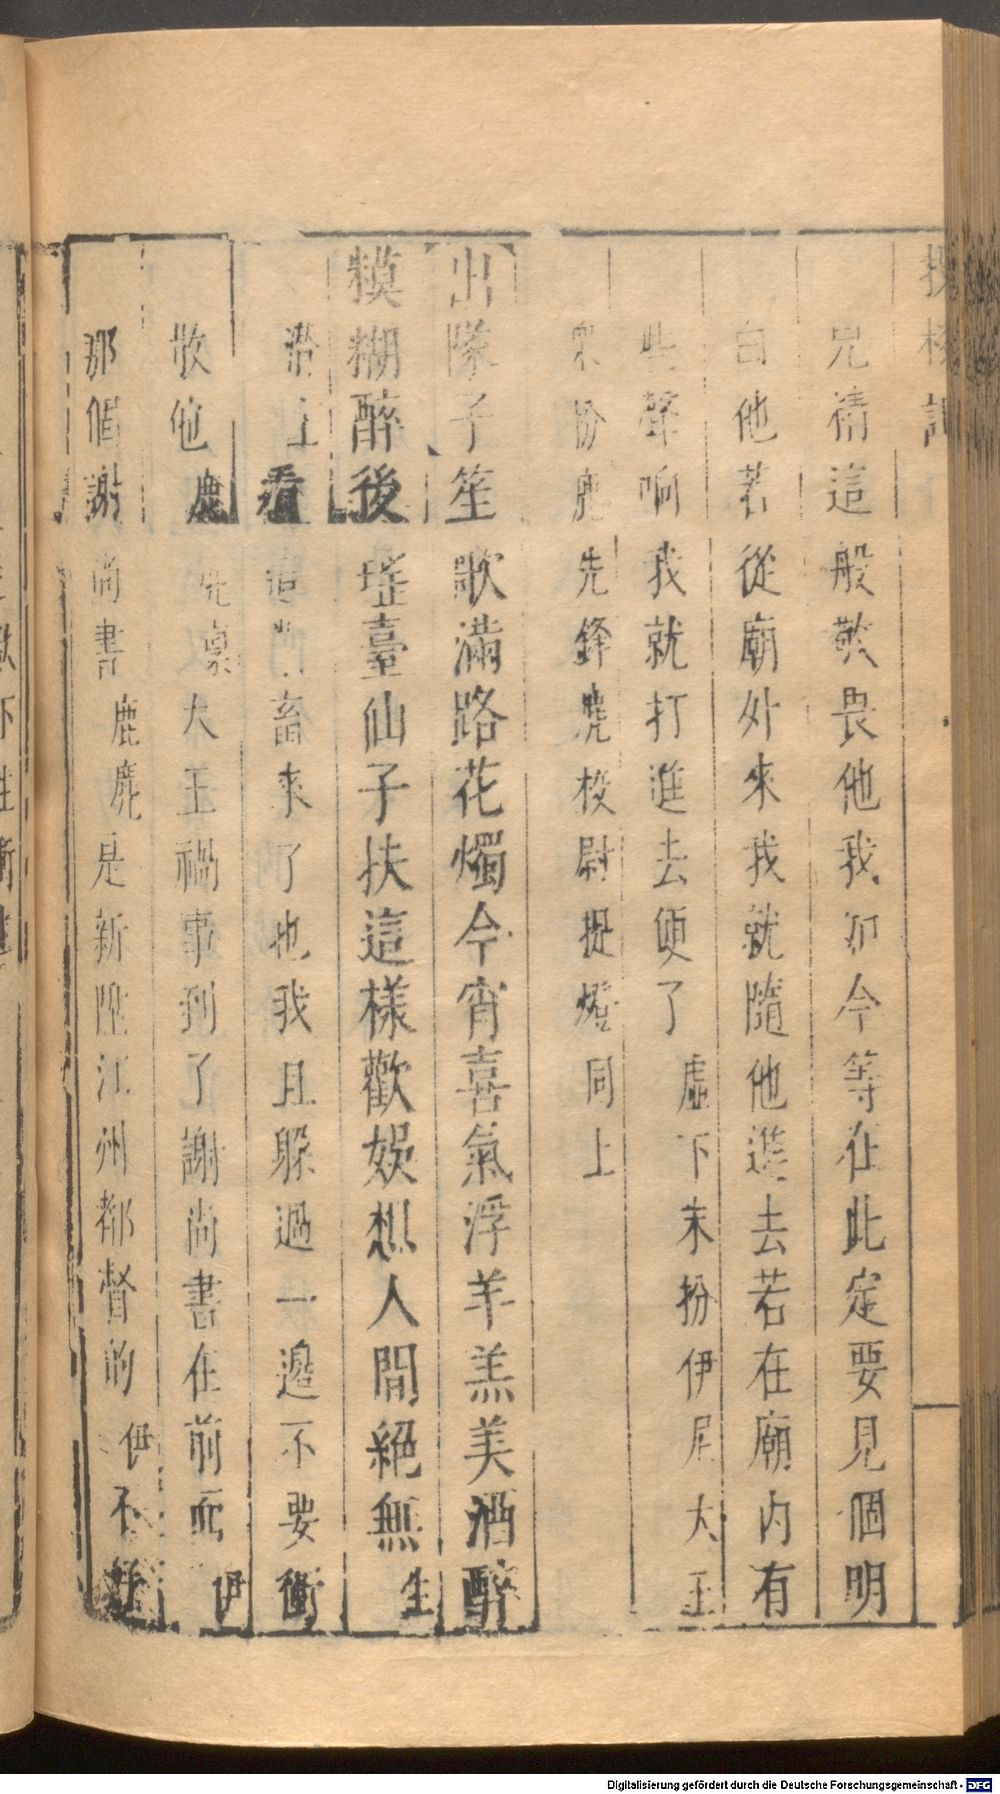 投梭記
兄精這般敬畏他我們今等在此定要見個明
白他若從廟外來我就隨他進去若在廟內有
些聲响我就打進去便了虛下末扮伊尼大王
衆扮鹿先鋒麂校尉提燈同上
出隊子笙歌滿路花燭今宵喜氣浮羊羔美酒醉
糢糊醉後瑤臺仙子扶這樣歡娛想人間絕無生
潛上看這畜來了也我且躲過一邊不要衝
散他鹿先稟大王禍事到了謝尚書在前面伊
那個謝尚書鹿麂是新陞江州都督的伊不
Digitalisierung gefördert durch die Deutsche Forschungsgemeinschaft - DFG